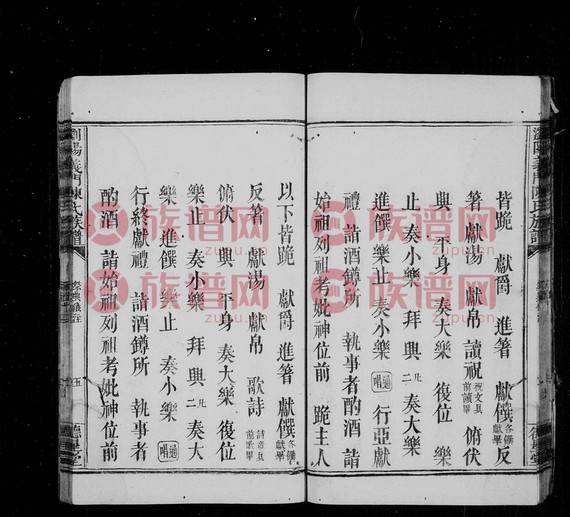 皆跪 獻爵 進箸 獻饌各饌獻畢反
箸 獻湯 獻帛 讀祝祝文具前讀畢俯伏
興 平身 奏大樂 復位 樂
止 奏小樂 拜興凡二 奏大樂
進饌 樂止 奏小樂 通唱 行亞獻
禮 請酒罇所 執事者酌酒 請
始祖列祖考妣神位前 跪主人
以下皆跪 獻爵 進箸 獻饌各饌獻畢
反箸 獻湯 獻帛 歌詩詩章具前歌畢
俯伏 興 平身 奏大樂 復位
樂止 奏小樂 拜興凡二 奏大
樂 進饌 樂止 奏小樂 通唱
行終獻禮 請酒罇所 執事者
酌酒 請始祖列祖考妣神位前
瀏陽義門陳氏族譜
祭典儀注
五
德星堂
族谱网
zupu.cn